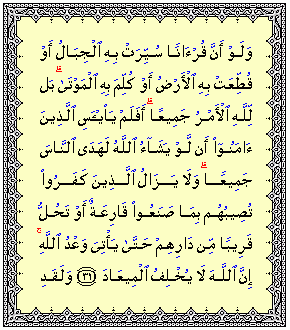 وَلَوْ أَنَّ قُرْءَانًا سُيِّرَتْ بِهِ ٱلْجِبَالُ أَوْ
قُطِّعَتْ بِهِ ٱلْأَرْضُ أَوْ كُلِّمَ بِهِ ٱلْمَوْتَىٰ ۗ بَل
لِّلَّهِ ٱلْأَمْرُ جَمِيعًا ۗ أَفَلَمْ يَا۟يْـَٔسِ ٱلَّذِينَ
ءَامَنُوٓا۟ أَن لَّوْ يَشَآءُ ٱللَّهُ لَهَدَى ٱلنَّاسَ
جَمِيعًا ۗ وَلَا يَزَالُ ٱلَّذِينَ كَفَرُوا۟
تُصِيبُهُم بِمَا صَنَعُوا۟ قَارِعَةٌ أَوْ تَحُلُّ
قَرِيبًا مِّن دَارِهِمْ حَتَّىٰ يَأْتِىَ وَعْدُ ٱللَّهِ ۚ
إِنَّ ٱللَّهَ لَا يُخْلِفُ ٱلْمِيعَادَ ﴿٣١﴾ وَلَقَدِ